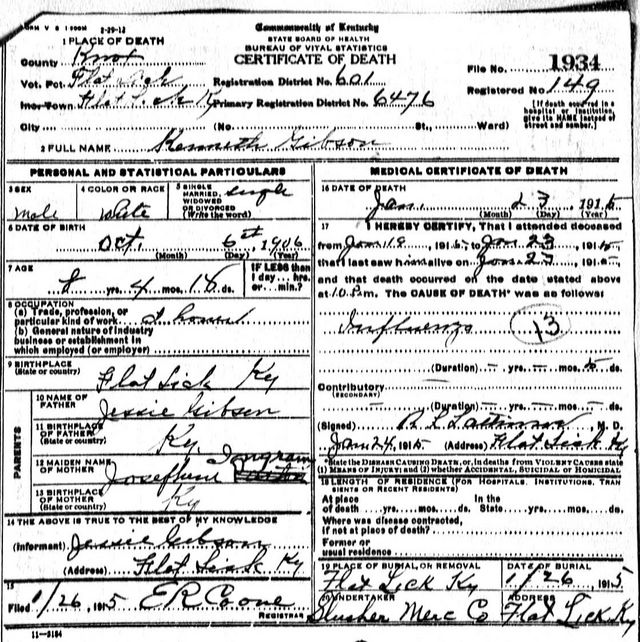 FORM V S 1 500M 2-29-12
Commonwealth of Kentucky
STATE BOARD OF HEALTH
BUREAU OF VITAL STATISTICS
CERTIFICATE OF DEATH
1 PLACE OF DEATH
County Knox
Vot. Pct. Flat Lick
Registration District No. 601
Inc. Town Flat Lick Ky
Primary Registration District No. 6476
City (No. St., Ward)
File No. 1934
Registered No. 149
[If death occurred in a hospital or institution, give its NAME instead of street and number.]
2 FULL NAME Kenneth Gibson
PERSONAL AND STATISTICAL PARTICULARS
3 SEX
male
4 COLOR OR RACE
white
5 SINGLE, MARRIED, WIDOWED OR DIVORCED (Write the word) single
6 DATE OF BIRTH
Oct. 6th, 1906
(Month) (Day) (Year)
7 AGE
8 yrs. 4 mos. 18 ds.
IF LESS than 1 day... hrs. or... min.?
8 OCCUPATION
(a) Trade, profession, or particular kind of work
(b) General nature of industry business or establishment in which employed (or employer)
9 BIRTHPLACE
(State or country) Flat Lick Ky
PARENTS
10 NAME OF FATHER Jessie Gibson
11 BIRTHPLACE OF FATHER (State or country) Ky.
12 MAIDEN NAME OF MOTHER Ingram
13 BIRTHPLACE OF MOTHER (State or country) Ky
14 THE ABOVE IS TRUE TO THE BEST OF MY KNOWLEDGE
(Informant) Jessie Gibson
(Address) Flat Lick Ky
15
Filed 1/26, 1915 E R Coone
REGISTRAR
11-3184
MEDICAL CERTIFICATE OF DEATH
16 DATE OF DEATH
Jan. 23, 1915
(Month) (Day) (Year)
17 I HEREBY CERTIFY, That I attended deceased
from Jan 19, 1915 to Jan 23, 1915
that I last saw him alive on Jan 23, 1915
and that death occurred on the date stated above
at 10 P.m. The CAUSE OF DEATH* was as follows:
Influenza 13
(Duration) – yrs. – mos. 5 ds.
Contributory
(SECONDARY)
(Duration) – yrs. – mos. – ds.
(Signed) M. D.
Jan 24, 1915 (Address) Flat Lick Ky
*State the DISEASE CAUSING DEATH, or, in deaths from VIOLENT CAUSES state (1) MEANS OF INJURY; and (2) whether ACCIDENTAL, SUICIDAL or HOMICIDAL
18 LENGTH OF RESIDENCE (FOR HOSPITALS, INSTITUTIONS, TRANSIENTS OR RECENT RESIDENTS)
At place of death yrs. mos. ds. In the State yrs. mos. ds.
Where was disease contracted, if not at place of death?
Former or usual residence
19 PLACE OF BURIAL OR REMOVAL
Flat Lick Ky
DATE OF BURIAL
1/26, 1915
20 UNDERTAKER
Slusher Merc Co
ADDRESS
Flat Lick Ky